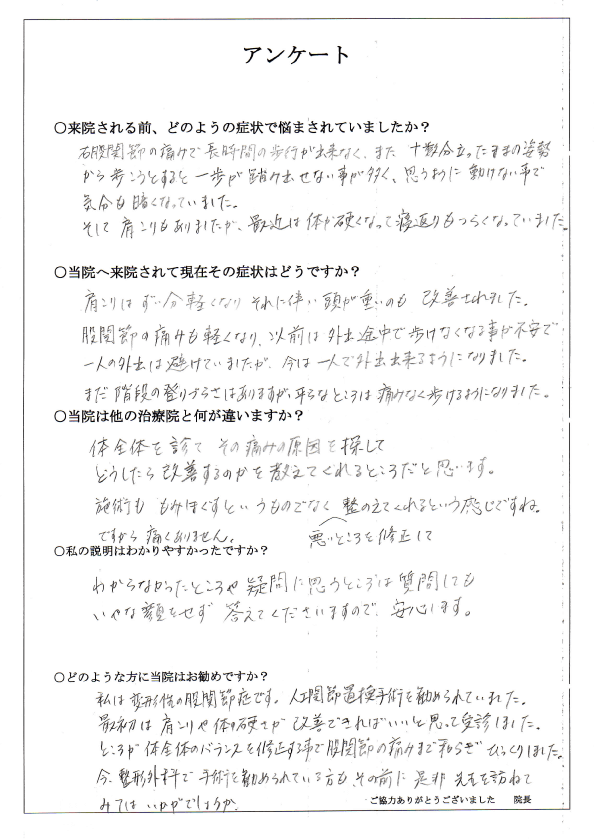 アンケート
○来院される前、どのようの症状で悩まされていましたか？
右股関節の痛みで長時間の歩行が出来なく、また 十数分立ったままの姿勢
から歩こうとすると一歩が踏み出せない事が多く、思うように動けない事で
気分も暗くなっていました。
そして肩こりもありましたが、最近は体が硬くなって寝返りもつらくなっていました。
○当院へ来院されて現在その症状はどうですか？
肩こりはずい分軽くなり それに伴い頭が重いのも 改善されました。
股関節の痛みも軽くなり、以前は外出途中で歩けなくなる事が不安で
一人の外出は避けていましたが、今は一人で外出出来るようになりました。
まだ階段の登りづらさはありますが、平らなところは痛みなく歩けるようになりました。
○当院は他の治療院と何が違いますか？
体全体を診て その痛みの原因を探して
どうしたら改善するのかを教えてくれるところだと思います。
施術も もみほぐすというものでなく 整のえてくれるという感じですね。
悪いところを修正して
ですから痛くありません。
○私の説明はわかりやすかったですか？
わからなかったところや疑問に思うところは質問しても
いやな顔をせず 答えてくださいますので、安心します。
○どのような方に当院はお勧めですか？
私は変形性の股関節症です。人工関節置換手術を勧められていました。
最初は肩こりや体の硬さが改善できればいいと思って受診しました。
ところが体全体のバランスを修正する事で股関節の痛みまで和らぎびっくりしました。
今、整形外科で手術を勧められている方も、その前に是非先生を訪ねて
みてはいかがでしょうか。
ご協力ありがとうございました 院長